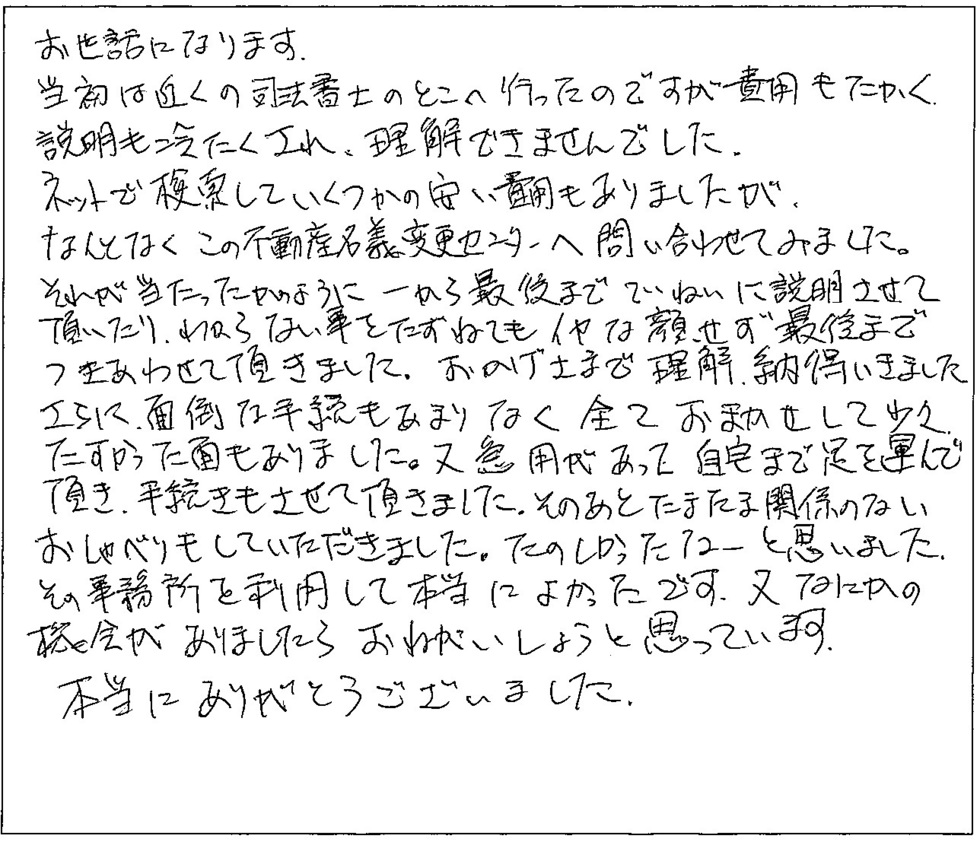 お世話になります.
当初は近くの司法書士のとこへ行ったのですが費用もたかく.
説明も冷たくされ、理解できませんでした.
ネットで検索していくつかの安い費用もありましたが、
なんとなくこの不動産名義変更センターへ問い合わせてみました。
それが当たったかのように一から最後までていねいに説明させて
頂いたり、わからない事をたずねてもイヤな顔せず最後まで
つきあわせて頂きました。おかげさまで理解、納得いきました
さらに、面倒な手続もあまりなく全ておまかせして少々
たすかった面もありました。又急用があって自宅まで足を運んで
頂き、手続きもさせて頂きました。そのあとたまたま関係のない
おしゃべりもしていただきました。たのしかったねーと思いました.
その事務所を利用して本当によかったです. 又なにかの
機会がありましたらおねがいしようと思っています.
本当にありがとうございました.